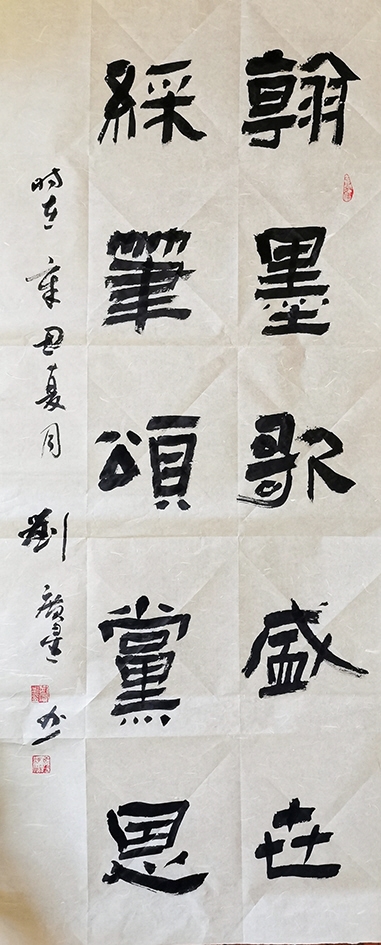 翰墨歌盛世
綵筆頌黨恩
時在辛丑夏月劉廣星书